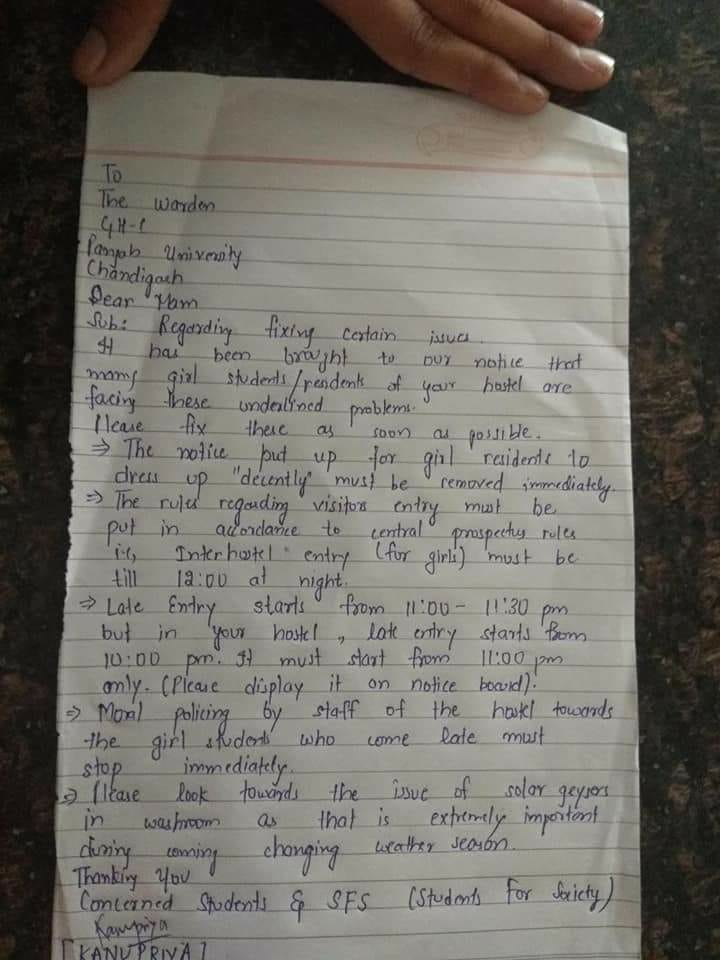 To
The Warden
GH-1
Panjab University
Chandigarh
Dear Mam
Sub: Regarding fixing certain issues.
It has been brought to our notice that
many girl students/residents of your hostel are
facing these underlined problems.
Please fix these as soon as possible.
⇒ The notice put up for girl residents to
dress up "decently" must be removed immediately.
⇒ The rules regarding visitors entry must be
put in accordance to central prospectus rules
i.e, Interhostel entry (for girls) must be
till 12:00 at night.
⇒ Late Entry starts from 11:00 - 11:30 pm
but in your hostel, late entry starts from
10:00 pm. It must start from 11:00 pm
only. (Please display it on notice board).
⇒ Moral policing by staff of the hostel towards
the girl students who come late must
stop immediately.
⇒ Please look towards the issue of solar geysers
in washroom as that is extremely important
during coming changing weather season.
Thanking You
Concerned Students & SFS (Students For Society)
Kanupriya
[KANUPRIYA]